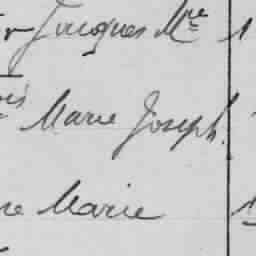 Jacques Mre 1
Marie Joseph.
re Marie 1